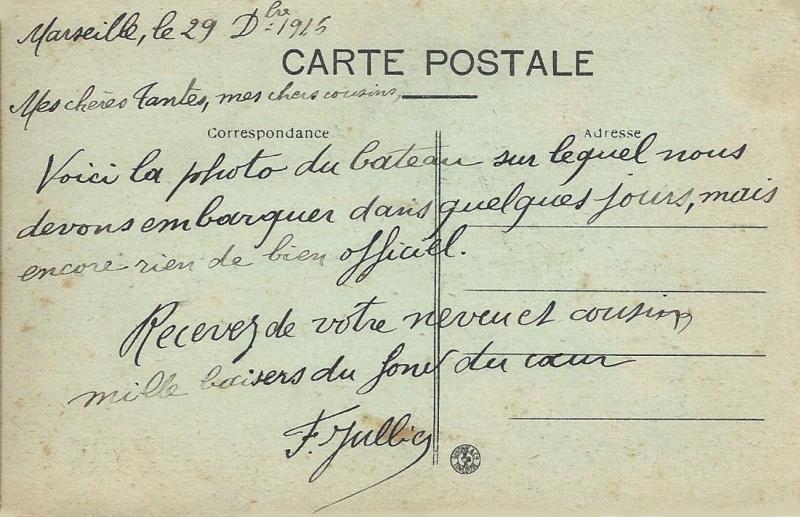 Marseille, le 29 Dbre 1915
CARTE POSTALE
Mes chères Tantes, mes chers cousins,
Correspondance
Adresse
Voici la photo du bateau sur lequel nous
devons embarquer dans quelques jours, mais
encore rien de bien officiel.
Recevez de votre neveu et cousin
mille baisers du fond du cœur
F.